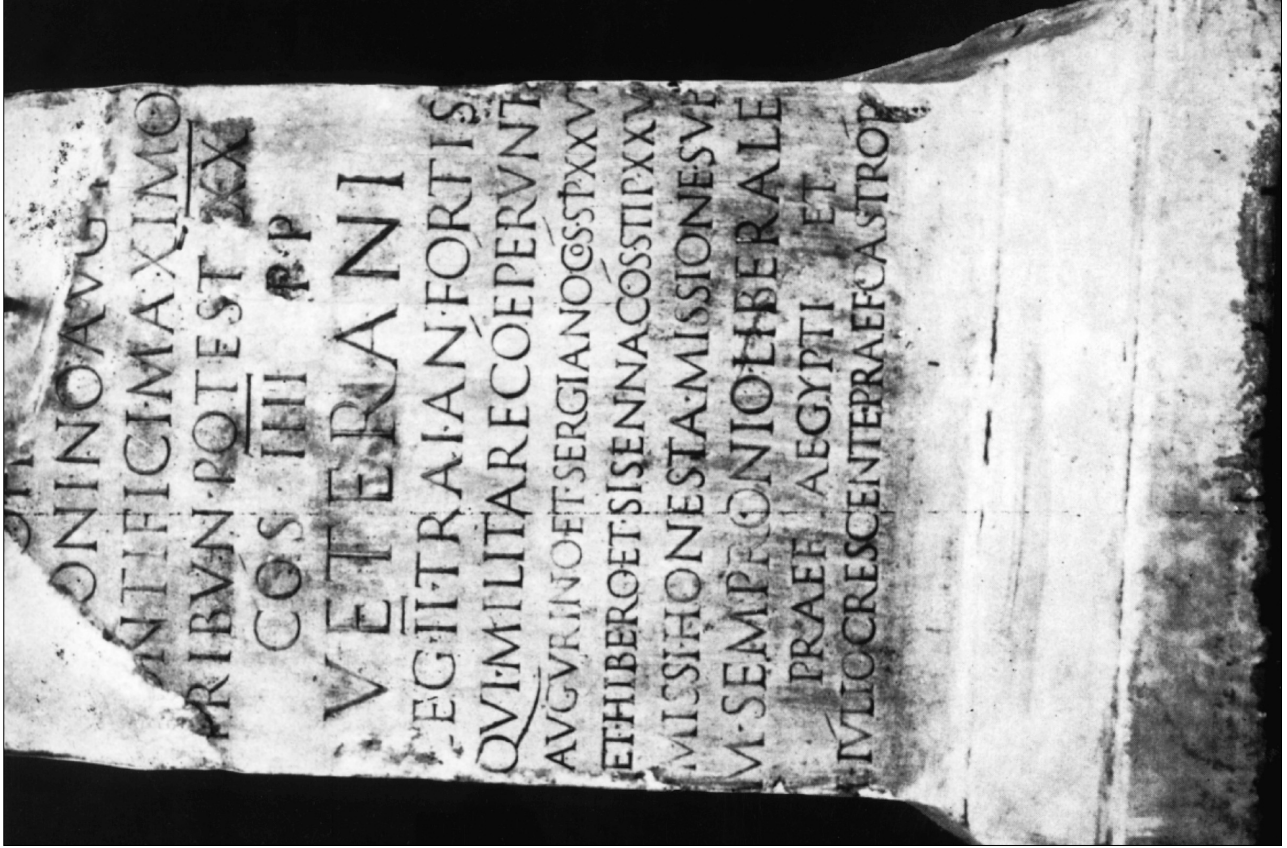 ONINO AVG
ONTIFICI·MAXIMO
TRIBVN·POTEST XX
COS IIII P P
VETERANI
LEG II·TRAIAN·FORTIS
QVI·MILITARE COEPERVNT
AVGVRINO ET·SERGIANO COS STP XXVI
ET·HIBERO ET·SISENNA COS STIP XXV
MISSI·HONESTA·MISSIONE·SVB
M·SEMPRONIO LIBERALE
PRAEF AEGYPTI ET
IVLIO CRESCENTE PRAEF CASTROR